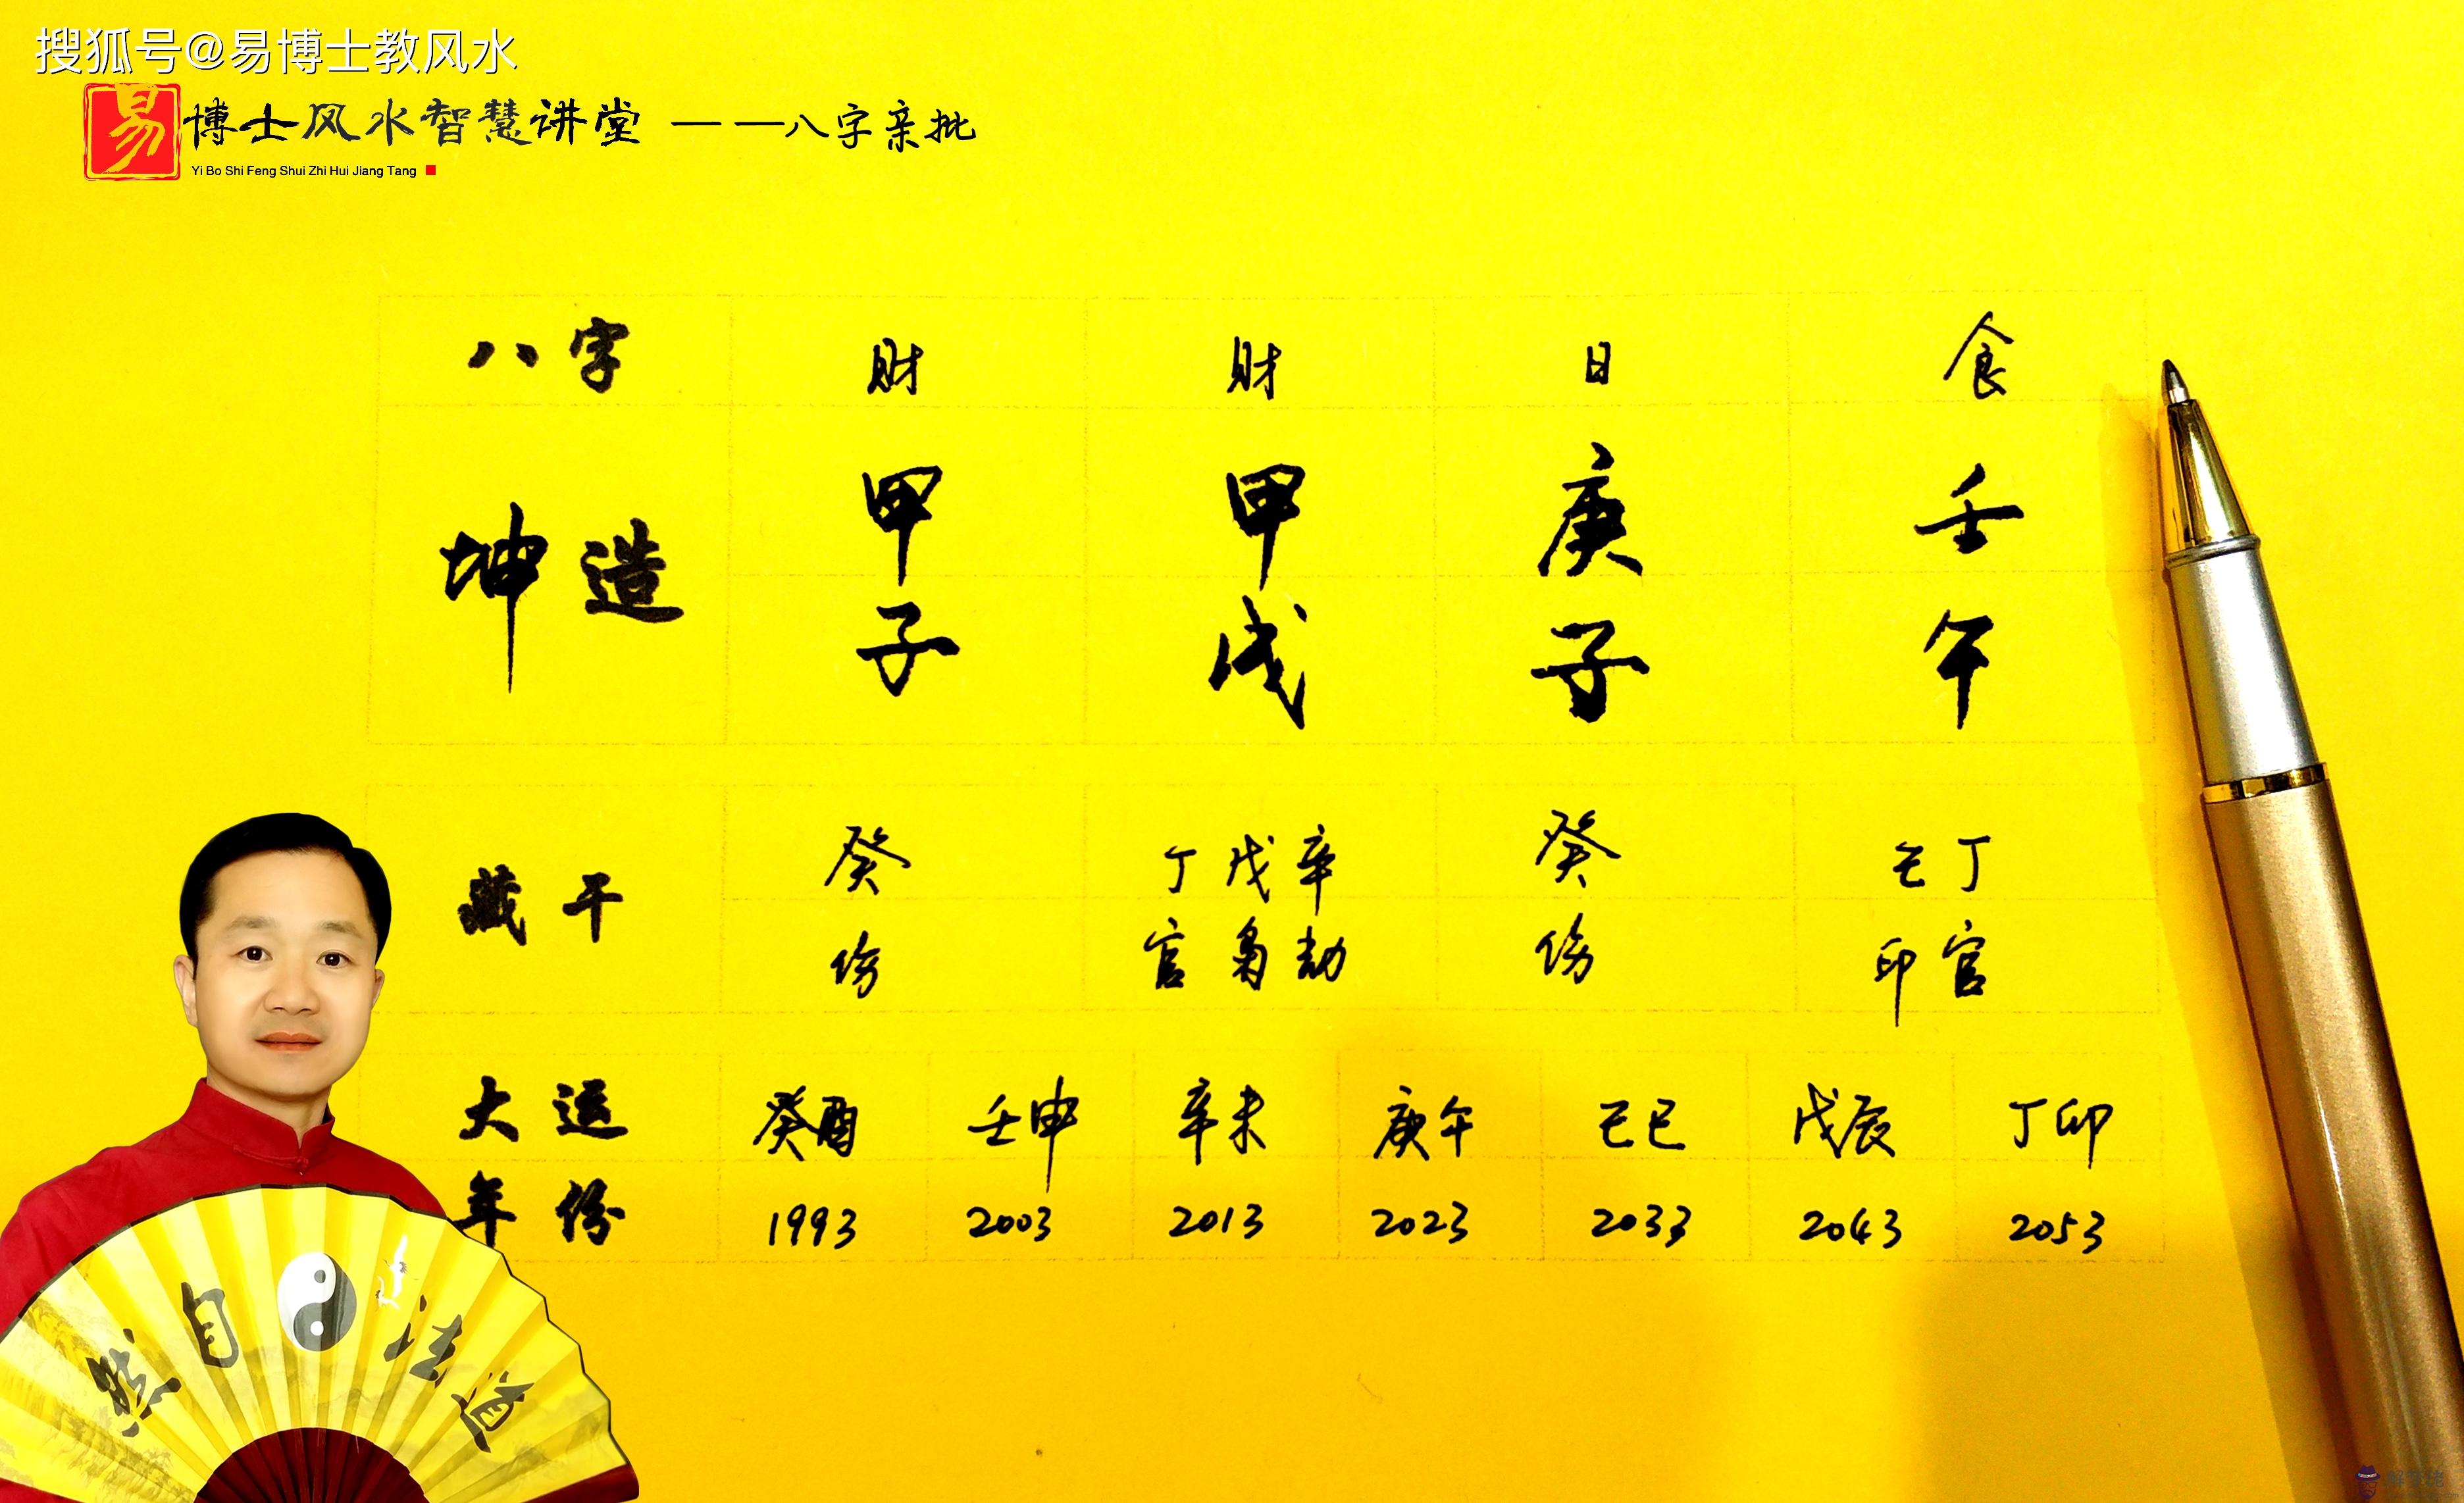 搜狐号@易博士教风水
易博士风水智慧讲堂 ——八字亲批
Yi Bo Shi Feng Shui Zhi Hui Jiang Tang
八字 财 财 日 食
坤造 甲 甲 庚 壬
子 戌 子 午
藏干 癸 丁戊辛 癸 己丁
伤 官枭劫 伤 印官
大运 癸酉 壬申 辛未 庚午 己巳 戊辰 丁卯
年份 1993 2003 2013 2023 2033 2043 2053
然自法道